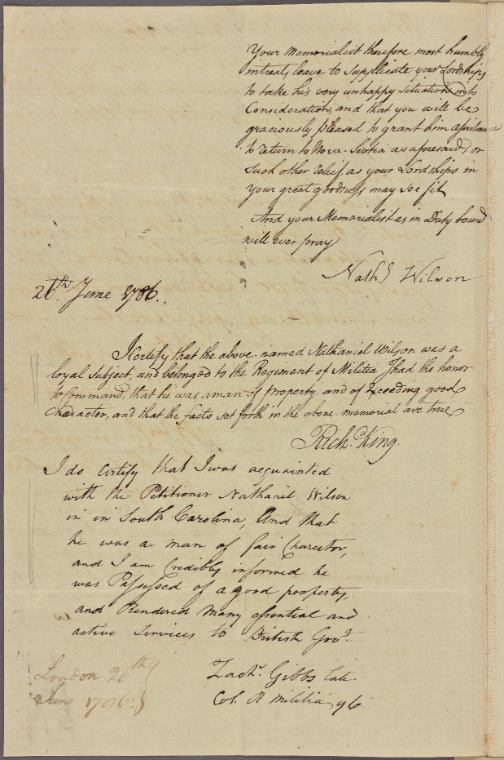 Your Memorialist therefore most humbly
intreats leave to Supplicate your Lordships
to take his very unhappy Situation into
Consideration, and that you will be
graciously pleased to grant him assistance
to return to Nova-Scotia as aforesaid, or
Such other relief as your Lordships in
your great goodness may see fit.
And your Memorialist as in Duty bound
will ever pray
Nathl Wilson
26th June 1786.
I Certify that the above named Nathaniel Wilson was a
loyal Subject, and belonged to the Regiment of Militia I had the honor
to Command, that he was a man of Property and of Exceeding good
Character, and that the facts set forth in the above memorial are true
Richd. King.
I do Certify that I was acquainted
with the Petitioner Nathaniel Wilson
in in South Carolina, And that
he was a man of fair Charector,
and I am Credibly informed he
was Possessed of a good property
and Rendered many essential and
active Services to British Govt.
London 26th
June 1786
Zachs. Gibbs late
Col. R Militia 96